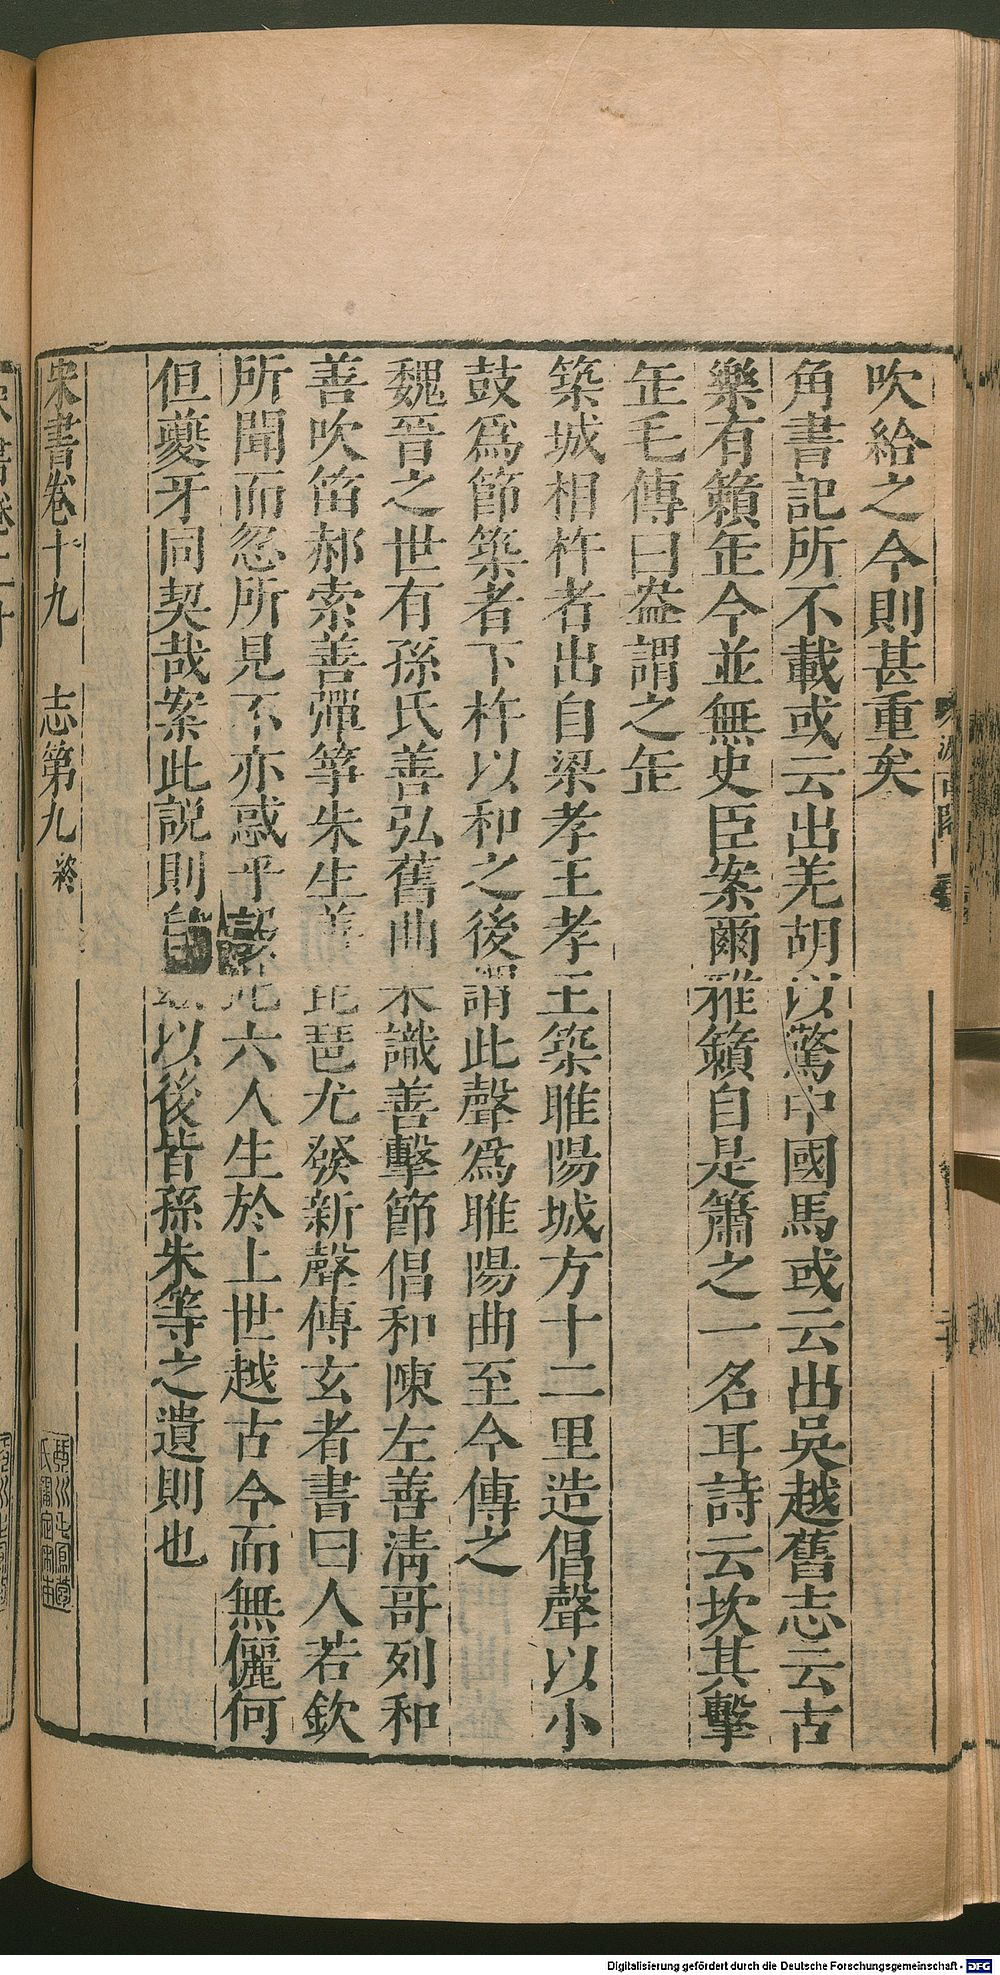 吹給之今則甚重矣
角書記所不載或云出羌胡以驚中國馬或云出吳越舊志云古
樂有籟缶今並無史臣案爾雅籟自是簫之一名耳詩云坎其擊
缶毛傳曰盎謂之缶
築城相杵者出自梁孝王孝王築睢陽城方十二里造倡聲以小
鼓爲節築者下杵以和之後謂此聲爲睢陽曲至今傳之
魏晉之世有孫氏善弘舊曲宋識善擊節倡和陳左善清哥列和
善吹笛郝索善彈箏朱生善琵琶尤發新聲傅玄者書曰人若欽
所聞而忽所見不亦惑乎設此六人生於上世越古今而無儷何
但夔牙同契哉案此說則自茲以後皆孫朱等之遺則也
宋書卷十九 志第九 終
Digitalisierung gefördert durch die Deutsche Forschungsgemeinschaft - DFG